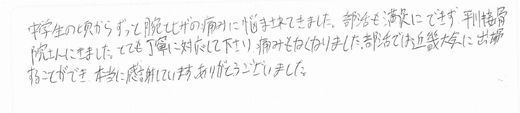 中学生の頃からずっと腕とヒザの痛みに悩まされてきました。部活も満足にできず 平川接骨
院さんにきました。とても丁寧に対応して下さり 痛みもなくなりました。部活では近畿大会に出場
することができ 本当に感謝しています。ありがとうございました。